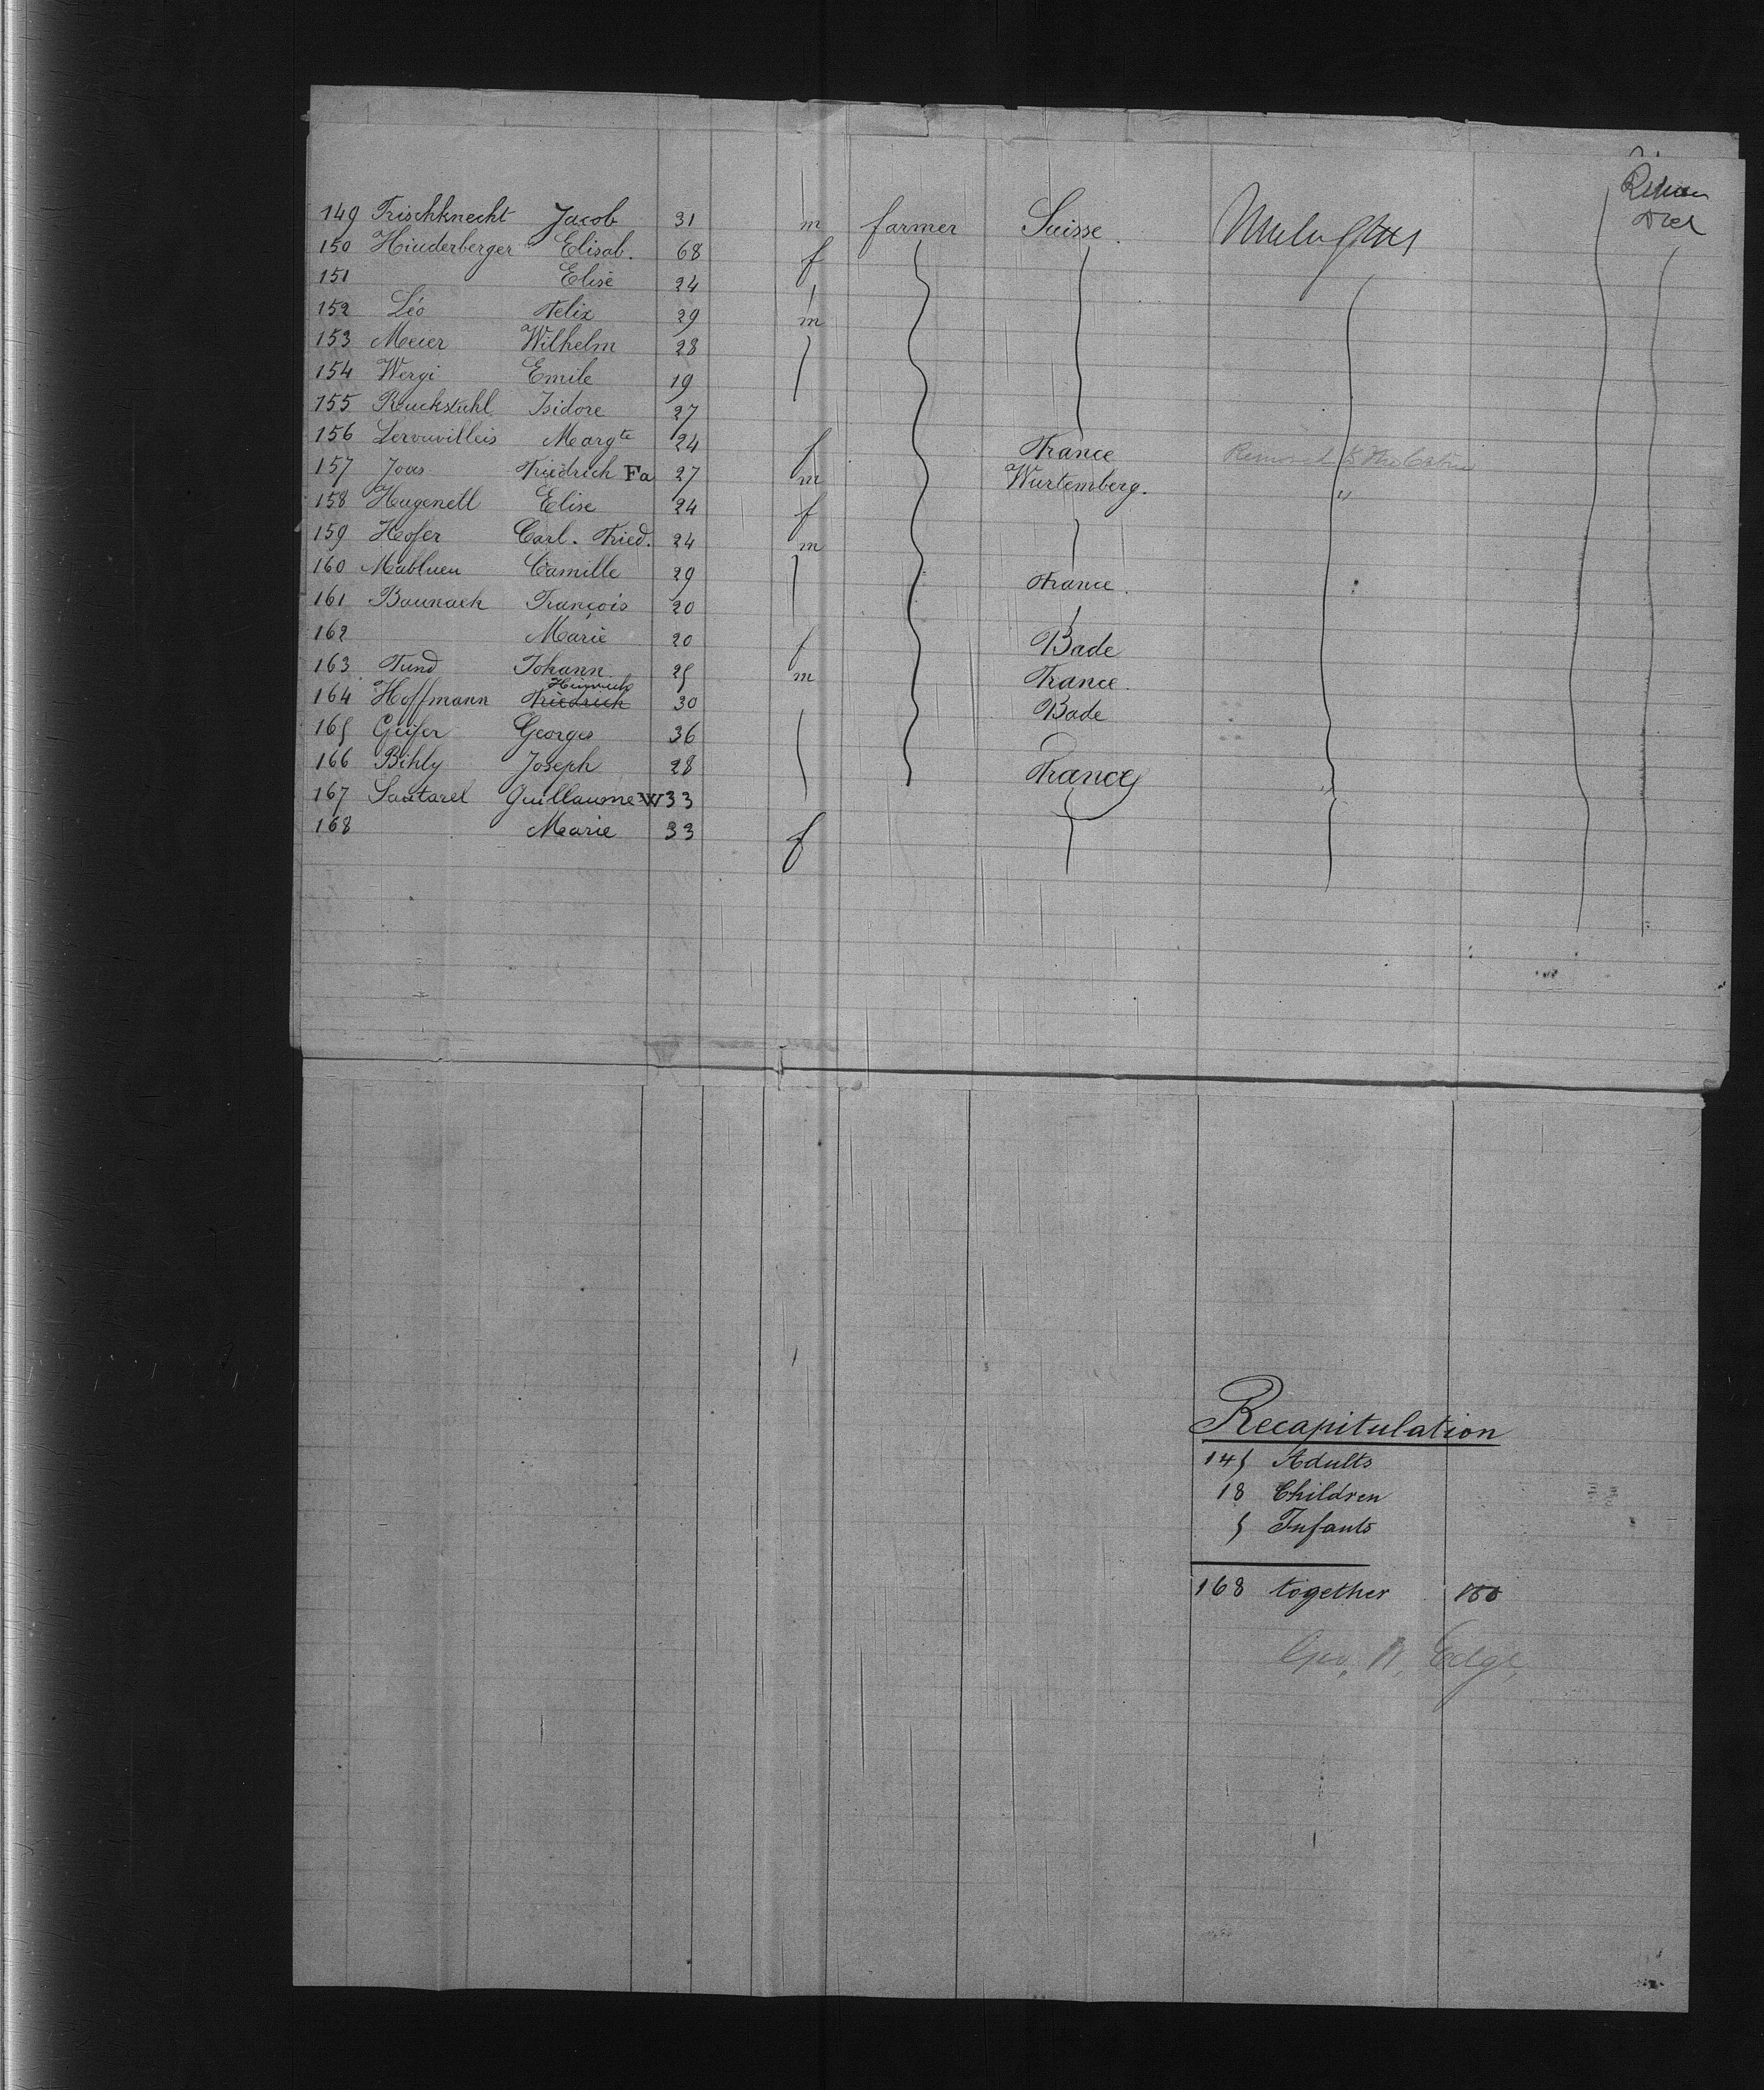 149 Frischknecht Jacob 31 m farmer Suisse
150 Hinderberger Elisab. 68 f
151 Elise 24
152 Léo Felix 29 m
153 Meier Wilhelm 28
154 Wergi Emile 19
155 Ruckstuhl Isidore 27
156 Margte 24 f France
157 Joos Friedrich Fa 27 m Wurtemberg.
158 Hagenell Elise 24 f "
159 Hofer Carl. Fried. 24 m
160 Camille 29 France.
161 Baunach François 20
162 Marie 20 f Bade
163 Fund Johann 25 m France.
164 Hoffmann Heinrich Friedrich 30 Bade
165 Geifer Georges 36
166 Bihly Joseph 28 France
167 Sautarel Guillaume W 33
168 Marie 33 f
Recapitulation
145 Adults
18 Children
5 Infants
168 together
Geo. N. Edge